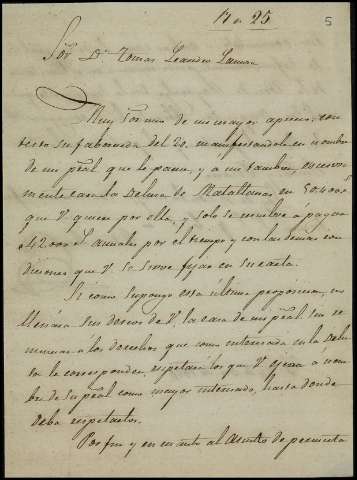 N.o 25
5
Sor Dn Tomas Leandro
Muy Sor mio de mi mayor aprecio, con
testo su favorecida del 20. manifestandole en nombre
de mi pral que le parece, y a mi tambien,
mente cara la Dehesa de Matallana en 50.000 rs
que V. quiere por ella, y solo se resuelve a pagar
42.000 rs anuales por el tiempo y con las demas con
diciones que V. se sirve fijar en su carta.
Si como supongo esta última proposicion, no
llenára los deseos de V. la casa de mi pral sin re
nunciar á los derechos que como interesada en la Dehe
sa le corresponden, respetará los que V. ejerza a nom
bre de Su pral como mayor interesado, hasta donde
deba respetarlos.
Por fin y en cuanto al asunto de